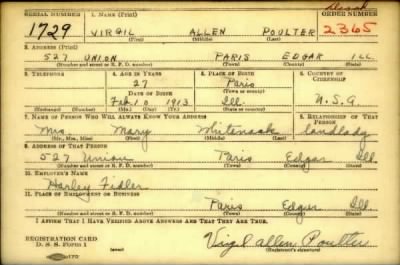 SERIAL NUMBER 1. NAME (Print) ORDER NUMBER
1729 VIRGIL ALLEN POULTER 2365
(First) (Middle) (Last)
2. ADDRESS (Print)
527 UNION PARIS EDGAR ILL.
(Number and street or R. F. D. number) (Town) (County) (State)
3. TELEPHONE 4. AGE IN YEARS 5. PLACE OF BIRTH 6. COUNTRY OF CITIZENSHIP
27 Paris
DATE OF BIRTH (Town or county)
Feb. 1913 Ill U.S.A
(Exchange) (Number) (Mo.) (Day) (Yr.) (State or country)
7. NAME OF PERSON WHO WILL ALWAYS KNOW YOUR ADDRESS 8. RELATIONSHIP OF THAT PERSON
Mrs. Mary Whitenack landlady
(Mr., Mrs., Miss) (First) (Middle) (Last)
9. ADDRESS OF THAT PERSON
527 Union Paris Edgar Ill
(Number and street or R. F. D. number) (Town) (County) (State)
10. EMPLOYER'S NAME
Harley Fidler
11. PLACE OF EMPLOYMENT OR BUSINESS
Paris Edgar Ill
(Number and street or R. F. D. number) (Town) (County) (State)
I AFFIRM THAT I HAVE VERIFIED ABOVE ANSWERS AND THAT THEY ARE TRUE.
REGISTRATION CARD
D. S. S. Form 1 (over) Virgil Allen Poulter
(Registrant's signature)